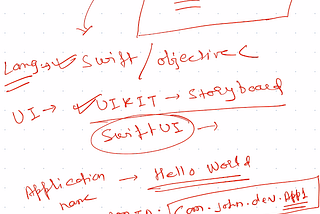 Lang → Swift / objective C
UI → UIKIT → Storyboard
SwiftUI →
Application → Hello World
name
ID: com.john.dev.App1